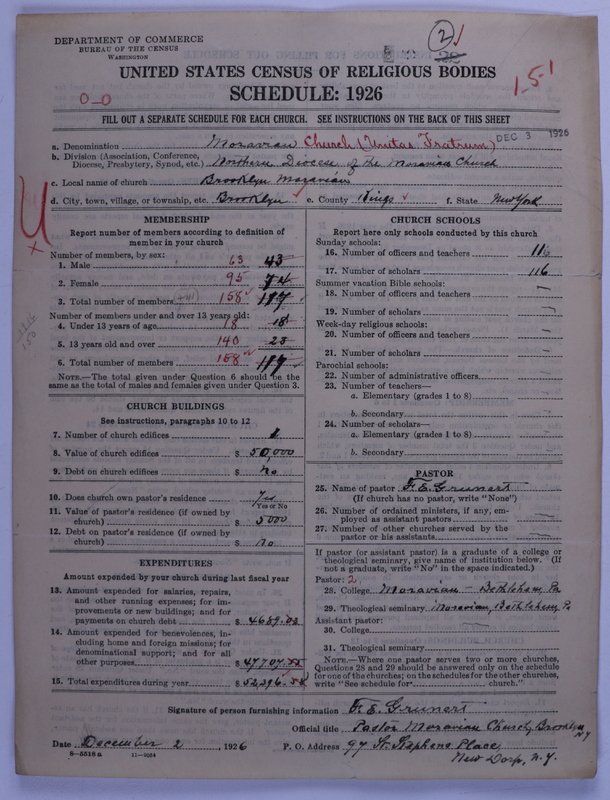 DEPARTMENT OF COMMERCE
BUREAU OF THE CENSUS
WASHINGTON
2
UNITED STATES CENSUS OF RELIGIOUS BODIES
SCHEDULE: 1926
1-5-1
0-0
FILL OUT A SEPARATE SCHEDULE FOR EACH CHURCH. SEE INSTRUCTIONS ON THE BACK OF THIS SHEET
DEC 3 1926
a. Denomination Moravian Church (Unitas Fratrum)
b. Division (Association, Conference, Diocese, Presbytery, Synod, etc.) Northern Diocese of the Moravian Church
c. Local name of church Brooklyn Moravian
d. City, town, village, or township, etc. Brooklyn e. County Kings f. State New York
MEMBERSHIP
Report number of members according to definition of member in your church
Number of members, by sex:
1. Male 63 43
2. Female 95 74
3. Total number of members 158 117
Number of members under and over 13 years old:
4. Under 13 years of age 18 18
5. 13 years old and over 140 23
6. Total number of members 158 117
NOTE.—The total given under Question 6 should be the same as the total of males and females given under Question 3.
CHURCH BUILDINGS
See instructions, paragraphs 10 to 12
7. Number of church edifices 1
8. Value of church edifices $ 50,000
9. Debt on church edifices $ No
10. Does church own pastor's residence Yes
Yes or No
11. Value of pastor's residence (if owned by church) $ 5000
12. Debt on pastor's residence (if owned by church) $ No
EXPENDITURES
Amount expended by your church during last fiscal year
13. Amount expended for salaries, repairs, and other running expenses; for improvements or new buildings; and for payments on church debt $ 4689.03
14. Amount expended for benevolences, including home and foreign missions; for denominational support; and for all other purposes $ 47707.55
15. Total expenditures during year $ 52396.58
CHURCH SCHOOLS
Report here only schools conducted by this church
Sunday schools:
16. Number of officers and teachers 11
17. Number of scholars 116
Summer vacation Bible schools:
18. Number of officers and teachers —
19. Number of scholars —
Week-day religious schools:
20. Number of officers and teachers —
21. Number of scholars —
Parochial schools:
22. Number of administrative officers —
23. Number of teachers—
a. Elementary (grades 1 to 8) —
b. Secondary —
24. Number of scholars—
a. Elementary (grades 1 to 8) —
b. Secondary —
PASTOR
25. Name of pastor F. E. Grunert
(If church has no pastor, write "None")
26. Number of ordained ministers, if any, employed as assistant pastors —
27. Number of other churches served by the pastor or his assistants —
If pastor (or assistant pastor) is a graduate of a college or theological seminary, give name of institution below. (If not a graduate, write "No" in the space indicated.)
Pastor: 2
28. College Moravian - Bethlehem, Pa
29. Theological seminary Moravian, Bethlehem, P.
Assistant pastor:
30. College
31. Theological seminary
NOTE.—Where one pastor serves two or more churches, Questions 28 and 29 should be answered only on the schedule for one of the churches; on the schedules for the other churches, write "See schedule for ______ church."
Signature of person furnishing information F. E. Grunert
Official title Pastor Moravian Church, Brooklyn N Y
Date December 2, 1926 P. O. Address 97 St. Stephens Place
New Dorp, N. Y.
8-5518 a 11-9064